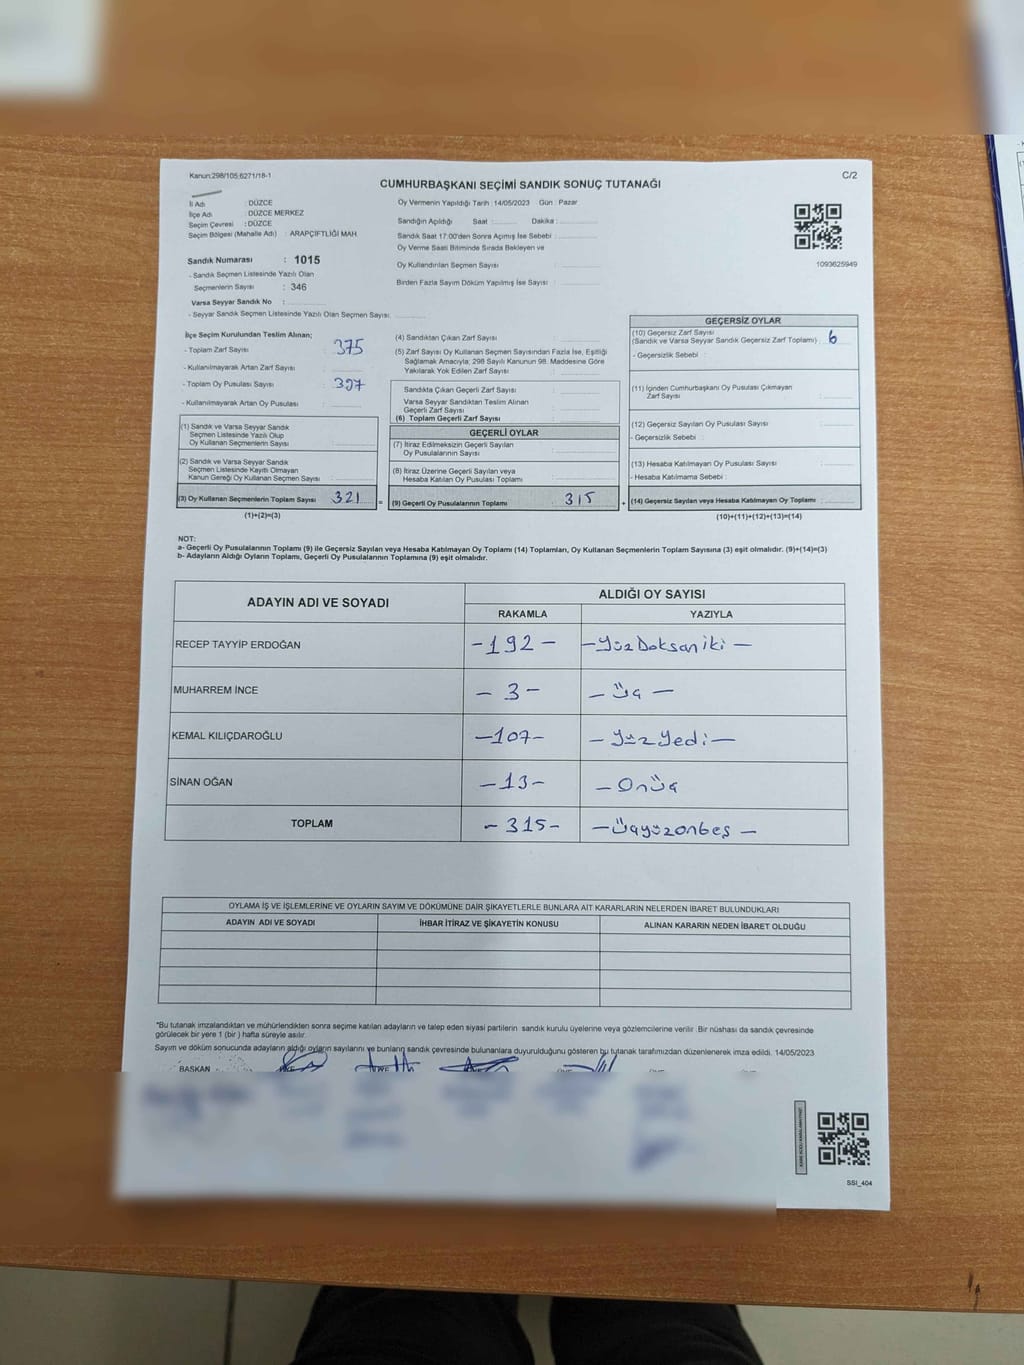 Kanun:298/105;6271/18-1
C/2
CUMHURBAŞKANI SEÇİMİ SANDIK SONUÇ TUTANAĞI
İli Adı : DÜZCE
İlçe Adı : DÜZCE MERKEZ
Seçim Çevresi : DÜZCE
Seçim Bölgesi (Mahalle Adı) : ARAPÇİFTLİĞİ MAH.
Sandık Numarası : 1015
- Sandık Seçmen Listesinde Yazılı Olan
Seçmenlerin Sayısı : 346
Varsa Seyyar Sandık No :
- Seyyar Sandık Seçmen Listesinde Yazılı Olan Seçmen Sayısı
Oy Vermenin Yapıldığı Tarih : 14/05/2023 Gün : Pazar
Sandığın Açıldığı Saat : Dakika :
Sandık Saat 17:00'den Sonra Açımış İse Sebebi :
Oy Verme Saati Bitiminde Sırada Bekleyen ve
Oy Kullandırılan Seçmen Sayısı :
Birden Fazla Sayım Döküm Yapılmış İse Sayısı :
1093625949
İlçe Seçim Kurulundan Teslim Alınan;
- Toplam Zarf Sayısı : 375
- Kullanılmayarak Artan Zarf Sayısı :
- Toplam Oy Pusulası Sayısı : 397
- Kullanılmayarak Artan Oy Pusulası :
(1) Sandık ve Varsa Seyyar Sandık
Seçmen Listesinde Yazılı Olup
Oy Kullanan Seçmenlerin Sayısı :
(2) Sandık ve Varsa Seyyar Sandık
Seçmen Listesinde Kayıtlı Olmayan
Kanun Gereği Oy Kullanan Seçmen Sayısı :
(3) Oy Kullanan Seçmenlerin Toplam Sayısı 321
(1)+(2)=(3)
=
(4) Sandıktan Çıkan Zarf Sayısı :
(5) Zarf Sayısı Oy Kullanan Seçmen Sayısından Fazla İse, Eşitliği
Sağlamak Amacıyla; 298 Sayılı Kanunun 98. Maddesine Göre
Yakılarak Yok Edilen Zarf Sayısı :
Sandıkta Çıkan Geçerli Zarf Sayısı :
Varsa Seyyar Sandıktan Teslim Alınan
Geçerli Zarf Sayısı :
(6) Toplam Geçerli Zarf Sayısı :
GEÇERLİ OYLAR
(7) İtiraz Edilmeksizin Geçerli Sayılan
Oy Pusulalarının Sayısı :
(8) İtiraz Üzerine Geçerli Sayılan veya
Hesaba Katılan Oy Pusulası Toplamı :
(9) Geçerli Oy Pusulalarının Toplamı : 315
+
GEÇERSİZ OYLAR
(10) Geçersiz Zarf Sayısı
(Sandık ve Varsa Seyyar Sandık Geçersiz Zarf Toplamı) : 6
- Geçersizlik Sebebi :
(11) İçinden Cumhurbaşkanı Oy Pusulası Çıkmayan
Zarf Sayısı :
(12) Geçersiz Sayılan Oy Pusulası Sayısı :
- Geçersizlik Sebebi :
(13) Hesaba Katılmayan Oy Pusulası Sayısı :
- Hesaba Katılmama Sebebi :
(14) Geçersiz Sayılan veya Hesaba Katılmayan Oy Toplamı :
(10)+(11)+(12)+(13)=(14)
NOT:
a- Geçerli Oy Pusulalarının Toplamı (9) ile Geçersiz Sayılan veya Hesaba Katılmayan Oy Toplamı (14) Toplamları, Oy Kullanan Seçmenlerin Toplam Sayısına (3) eşit olmalıdır. (9)+(14)=(3)
b- Adayların Aldığı Oyların Toplamı, Geçerli Oy Pusulalarının Toplamına (9) eşit olmalıdır.
ADAYIN ADI VE SOYADI ALDIĞI OY SAYISI
RAKAMLA YAZIYLA
RECEP TAYYİP ERDOĞAN -192- -YüzDoksaniki-
MUHARREM İNCE -3- -Üç-
KEMAL KILIÇDAROĞLU -107- -YüzYedi-
SİNAN OĞAN -13- -Onüç
TOPLAM -315- -Üçyüzonbeş-
OYLAMA İŞ VE İŞLEMLERİNE VE OYLARIN SAYIM VE DÖKÜMÜNE DAİR ŞİKAYETLERLE BUNLARA AİT KARARLARIN NELERDEN İBARET BULUNDUKLARI
ADAYIN ADI VE SOYADI İHBAR İTİRAZ VE ŞİKAYETİN KONUSU ALINAN KARARIN NEDEN İBARET OLDUĞU
*Bu tutanak imzalandıktan ve mühürlendikten sonra seçime katılan adayların ve talep eden siyasi partilerin sandık kurulu üyelerine veya gözlemcilerine verilir. Bir nüshası da sandık çevresinde
görülecek bir yere 1 (bir) hafta süreyle asılır.
Sayım ve döküm sonucunda adayların aldığı oyların sayılarını ve bunların sandık çevresinde bulunanlara duyurulduğunu gösteren bu tutanak tarafımızdan düzenlenerek imza edildi. 14/05/2023
BAŞKAN
SSI_404